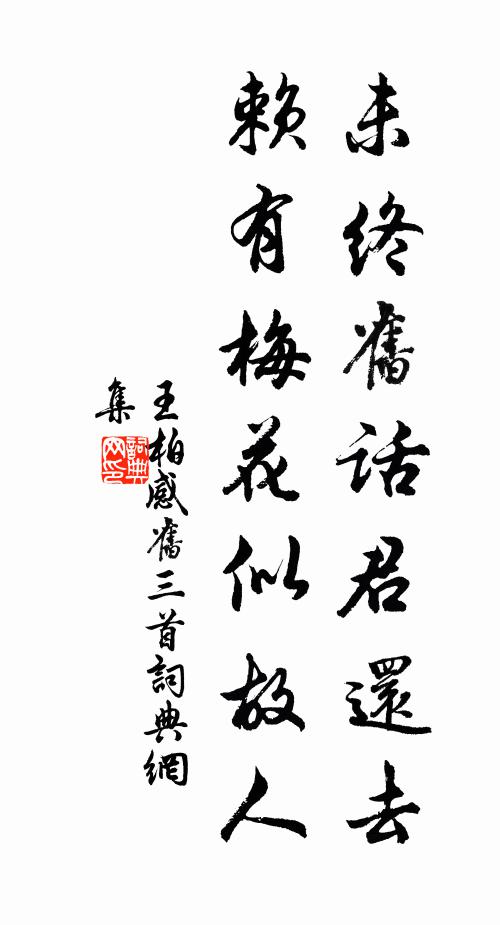 未終舊話君還去
賴有梅花似故人
王柏感舊三首詞典網
集
詞典
网印